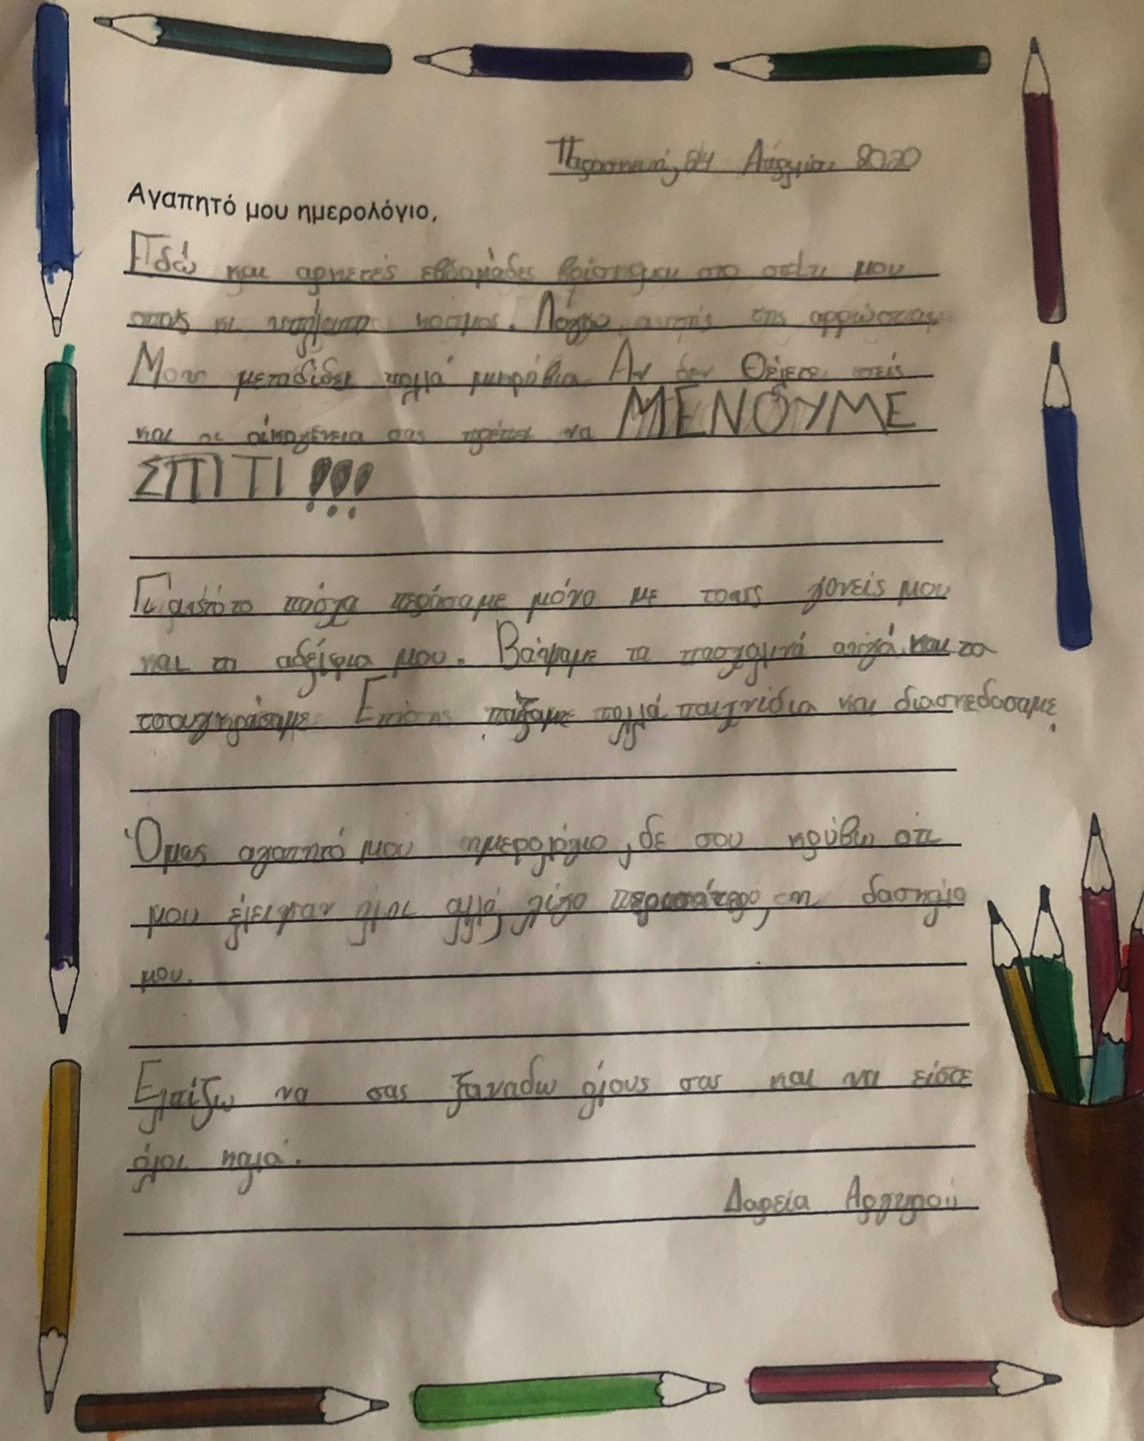 Παρασκευή, 24 Απριλίου 2020
Αγαπητό μου ημερολόγιο,
Εδώ και αρκετές εβδομάδες βρίσκομαι στο σπίτι μου
όπως κι υπόλοιπο κόσμος. Λόγω αυτής της αρρώστιας.
Μας μεταδίδει πολλά μικρόβια. Αν δεν θέλετε εσείς
και οι οικογένεια σας πρέπει να ΜΕΝΟΥΜΕ
ΣΠΙΤΙ!!!
Γι'αυτό το πάσχα περάσαμε μόνο με τους γονείς μου
και τα αδέλφια μου. Βάψαμε τα πασχαλινά αυγά και τα
τσουγκρίσαμε. Επίσης παίξαμε πολλά παιχνίδια και διασκεδάσαμε.
Όμως αγαπητό μου ημερολόγιο, δε σου κρύβω ότι
μου έλειψαν όλοι αλλά, λίγο περισσότερο, η δασκάλα
μου.
Ελπίζω να σας ξαναδώ όλους σας και να είστε
όλοι καλά.
Δαρεία Αργυρού